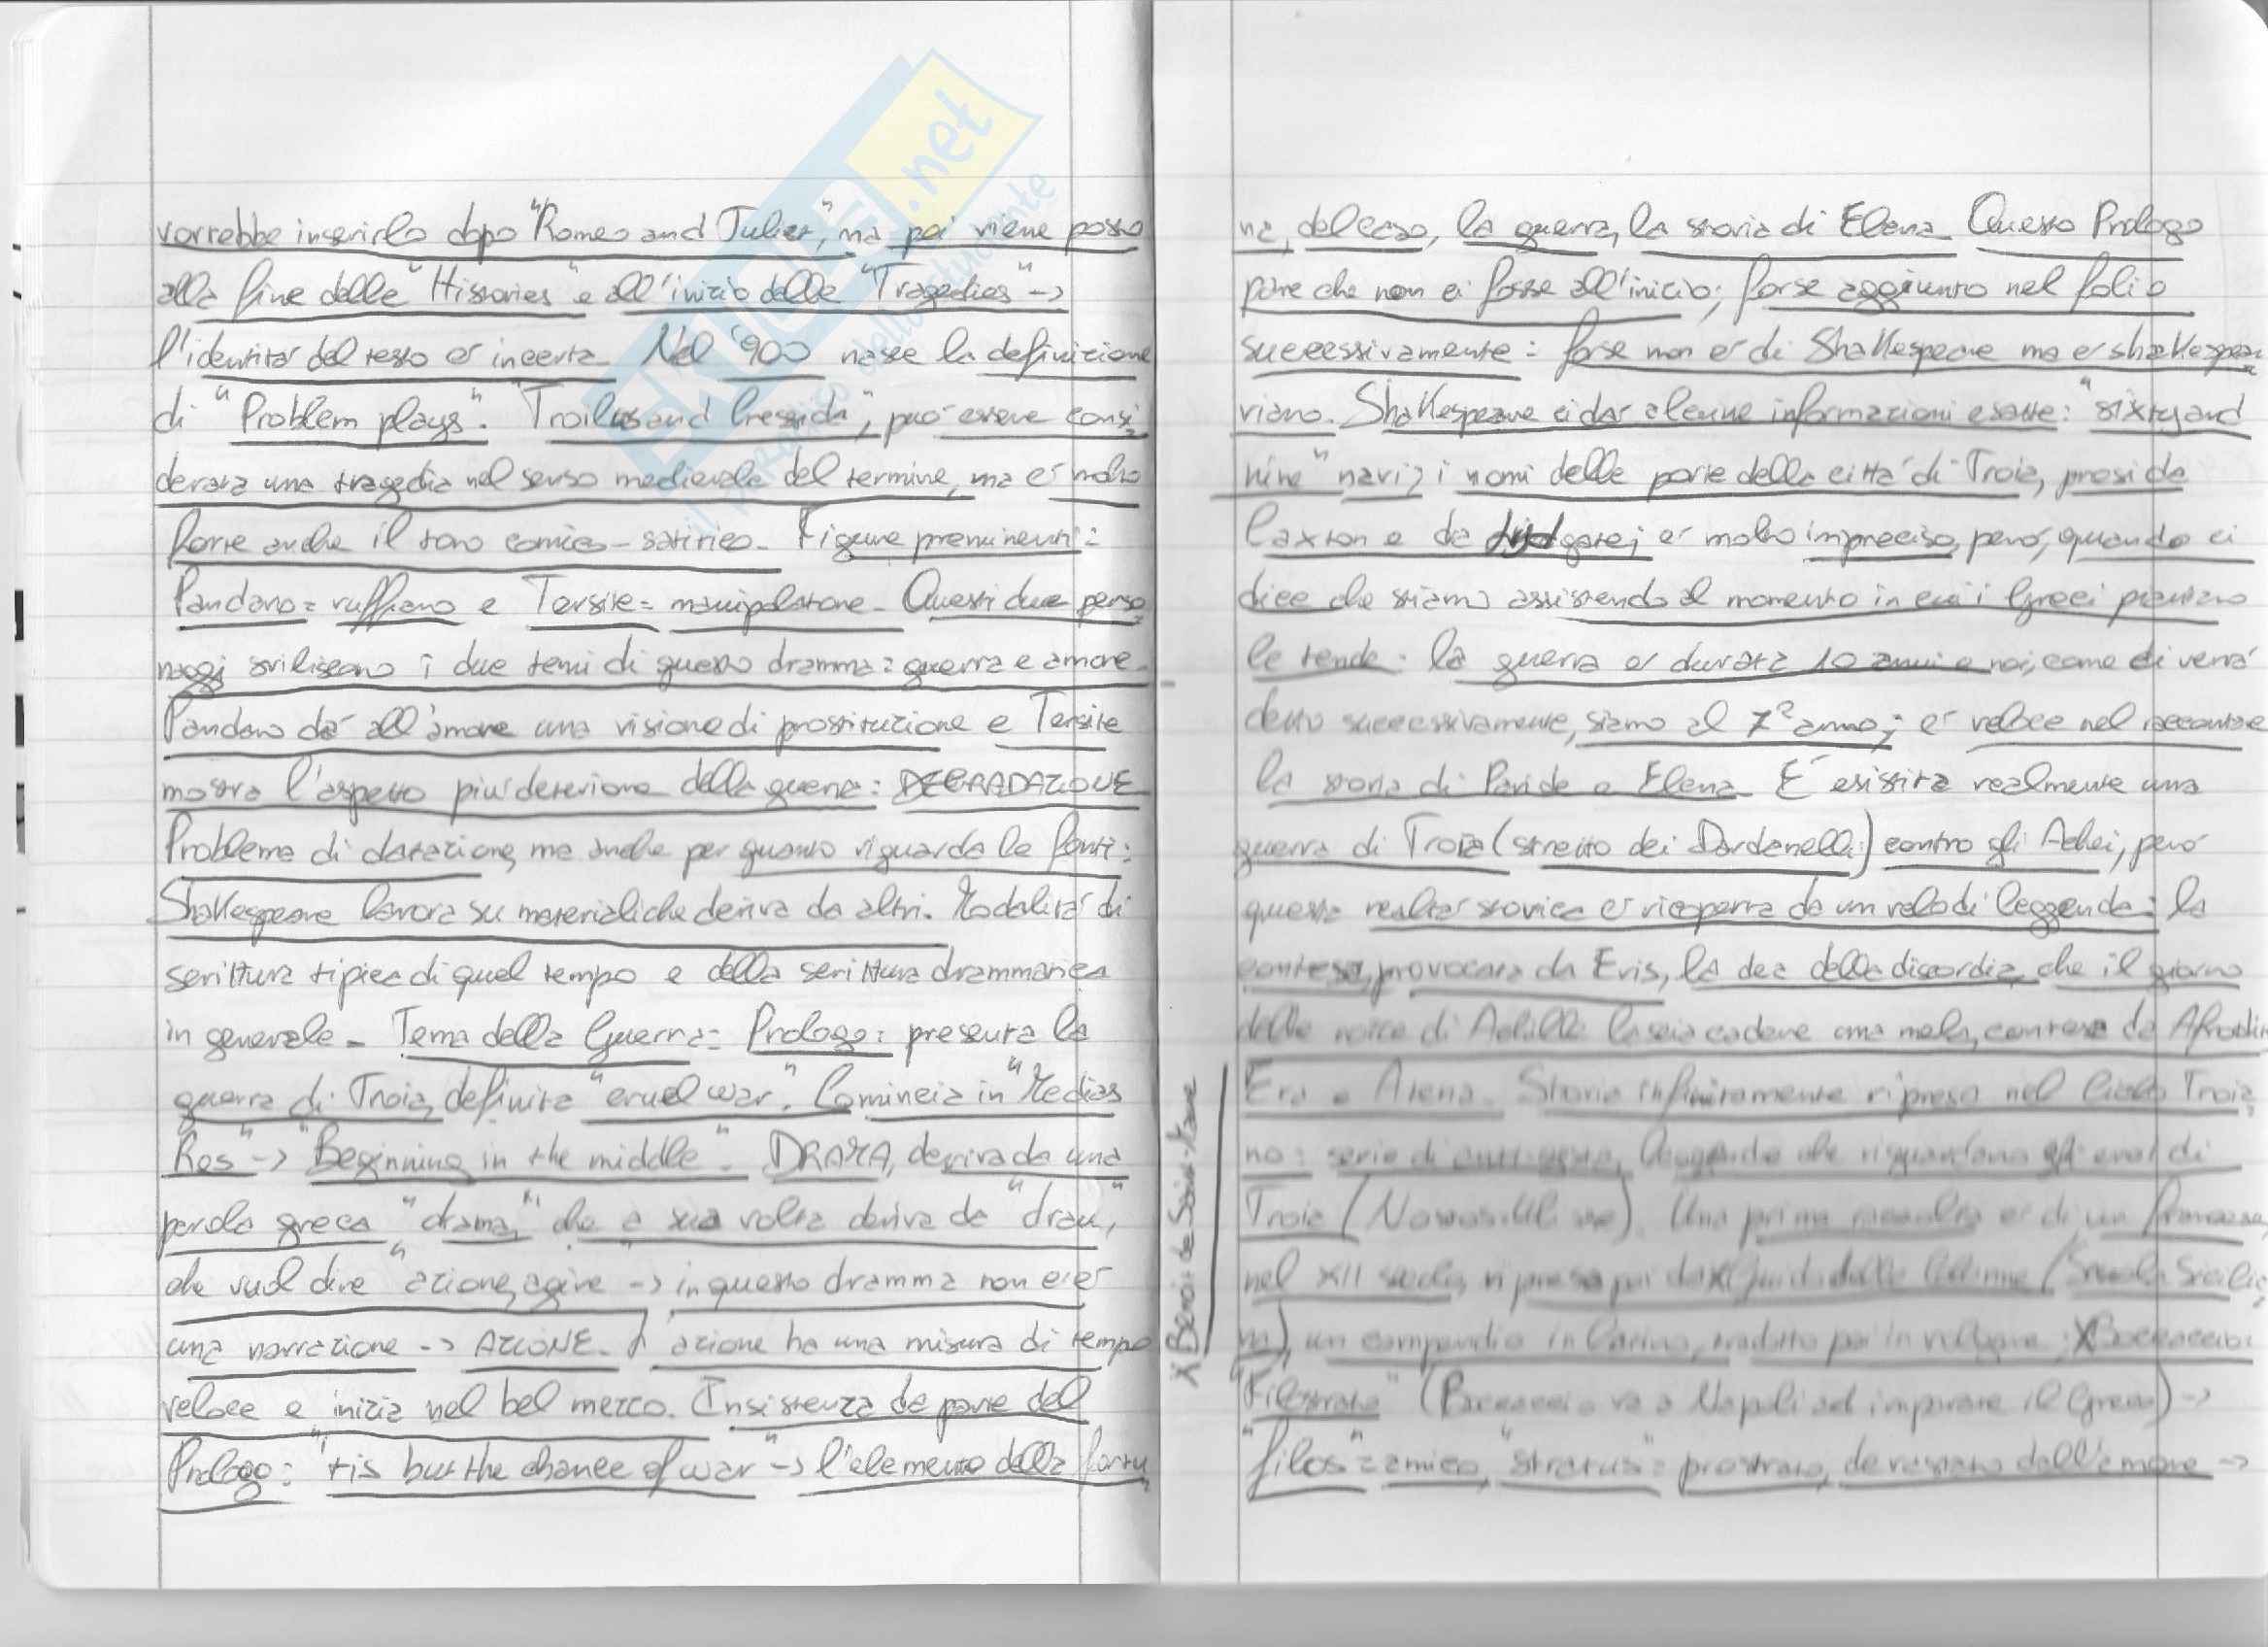 vorrebbe inserirlo dopo "Romeo and Juliet", ma poi viene posto
alla fine delle "Histories" e all'inizio delle "Tragedies" ->
l'identità del testo è incerta. Nel '900 nasce la definizione
di "Problem plays". "Troilus and Cressida", può essere consi
derata una tragedia nel senso medievale del termine, ma è molto
forte anche il tono comico-satirico. Figure preminenti:
Pandaro= ruffiano e Tersite= manipolatore. Questi due perso
naggi sviliscono i due temi di questo dramma: guerra e amore.
Pandaro dà all'amore una visione di prostituzione e Tersite
mostra l'aspetto più deteriore della guerra: DEGRADAZIONE
Problema di datazione, ma anche per quanto riguarda le fonti:
Shakespeare lavora su materiali che deriva da altri. Modalità di
scrittura tipica di quel tempo e della scrittura drammatica
in generale. Tema della Guerra: Prologo: presenta la
guerra di Troia, definita "cruel war". Comincia in "Medias
Res" -> "Beginning in the middle". DRAMA, deriva da una
parola greca "drama", che a sua volta deriva da "drau",
che vuol dire "azione, agire -> in questo dramma non c'è
una narrazione -> AZIONE. L'azione ha una misura di tempo
veloce e inizia nel bel mezzo. Insistenza da parte del
Prologo: "'tis but the chance of war" -> l'elemento della fortu
na, del caso, la guerra, la storia di Elena. Questo Prologo
pare che non ci fosse all'inizio; forse aggiunto nel folio
successivamente: forse non è di Shakespeare ma è shakespea
riano. Shakespeare ci dà alcune informazioni esatte: "sixty and
nine" navi; i nomi delle porte della città di Troia, presi da
Caxton e da Lydgate; è molto impreciso, però, quando ci
dice che stiamo assistendo al momento in cui i Greci piantano
le tende: la guerra è durata 10 anni e noi, come di verrà
detto successivamente, siamo al 7° anno; è veloce nel raccontare
la storia di Paride e Elena. È esistita realmente una
guerra di Troia (stretto dei Dardanelli) contro gli Achei, però
questa realtà storica è ricoperta da un velo di leggenda: la
contesa, provocata da Eris, la dea della discordia, che il giorno
delle nozze di Achille lascia cadere una mela, contesa da Afrodite
Era e Atena. Storia infinitamente ripresa nel Ciclo Troia
no: serie di leggende che riguardano gli eroi di
Troia. Una prima raccolta è di un francese,
nel XII secolo, ripresa poi da X Guido delle Colonne (Scuola Sicilia
na), un compendio in latino, tradotto poi in volgare; X Boccaccio:
"Filostrato" (Boccaccio va a Napoli ad imparare il Greco) ->
"filos"= amico, "stratus"= prostrato, devastato dall'amore ->
X Benoit de Sainte-Maure
.net